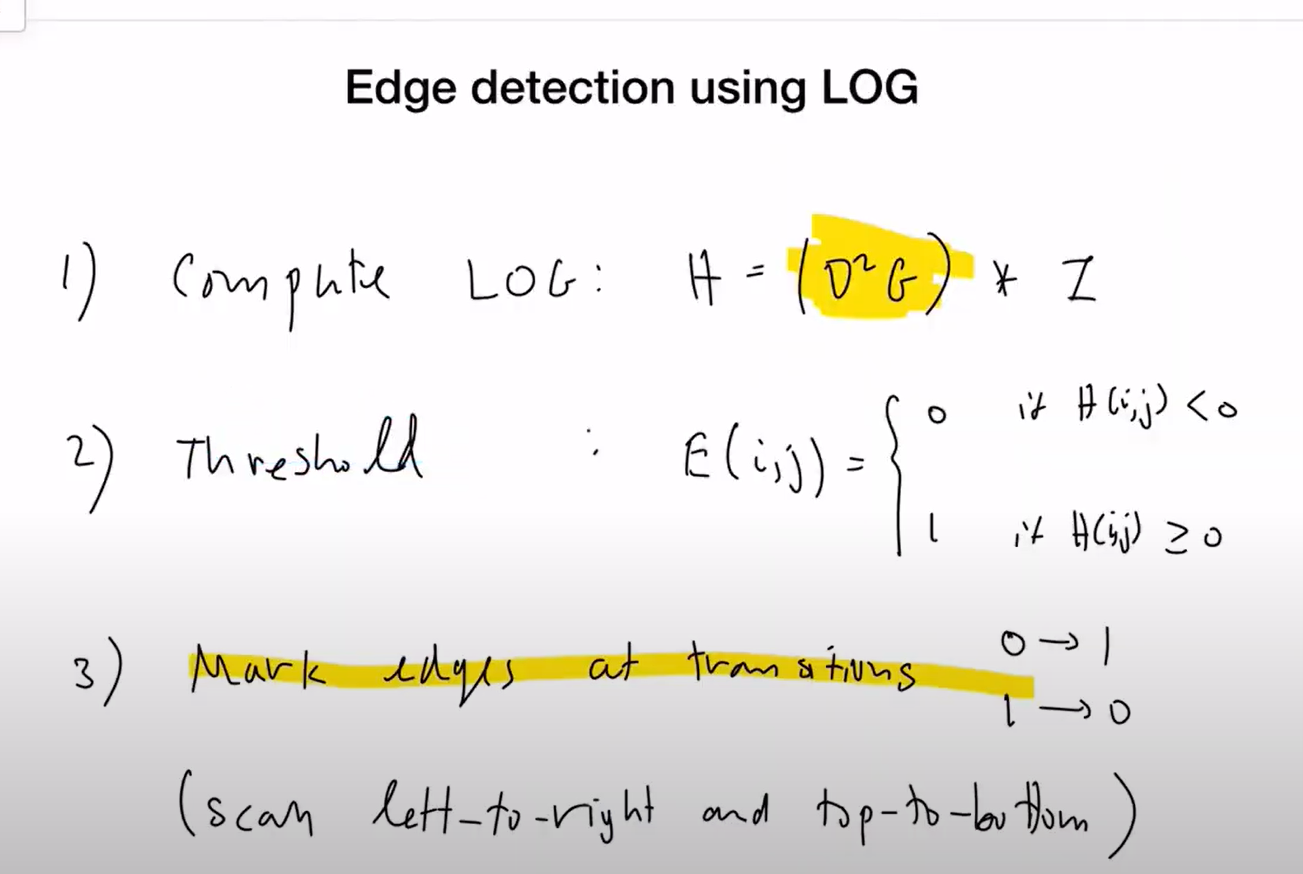 Edge detection using LOG
1) Compute LOG: H = (D²G) * I
2) Threshold : E(i,j) = { 0 if H(i,j) < 0
1 if H(i,j) ≥ 0
3) Mark edges at transitions 0 → 1
1 → 0
(scan left-to-right and top-to-bottom)